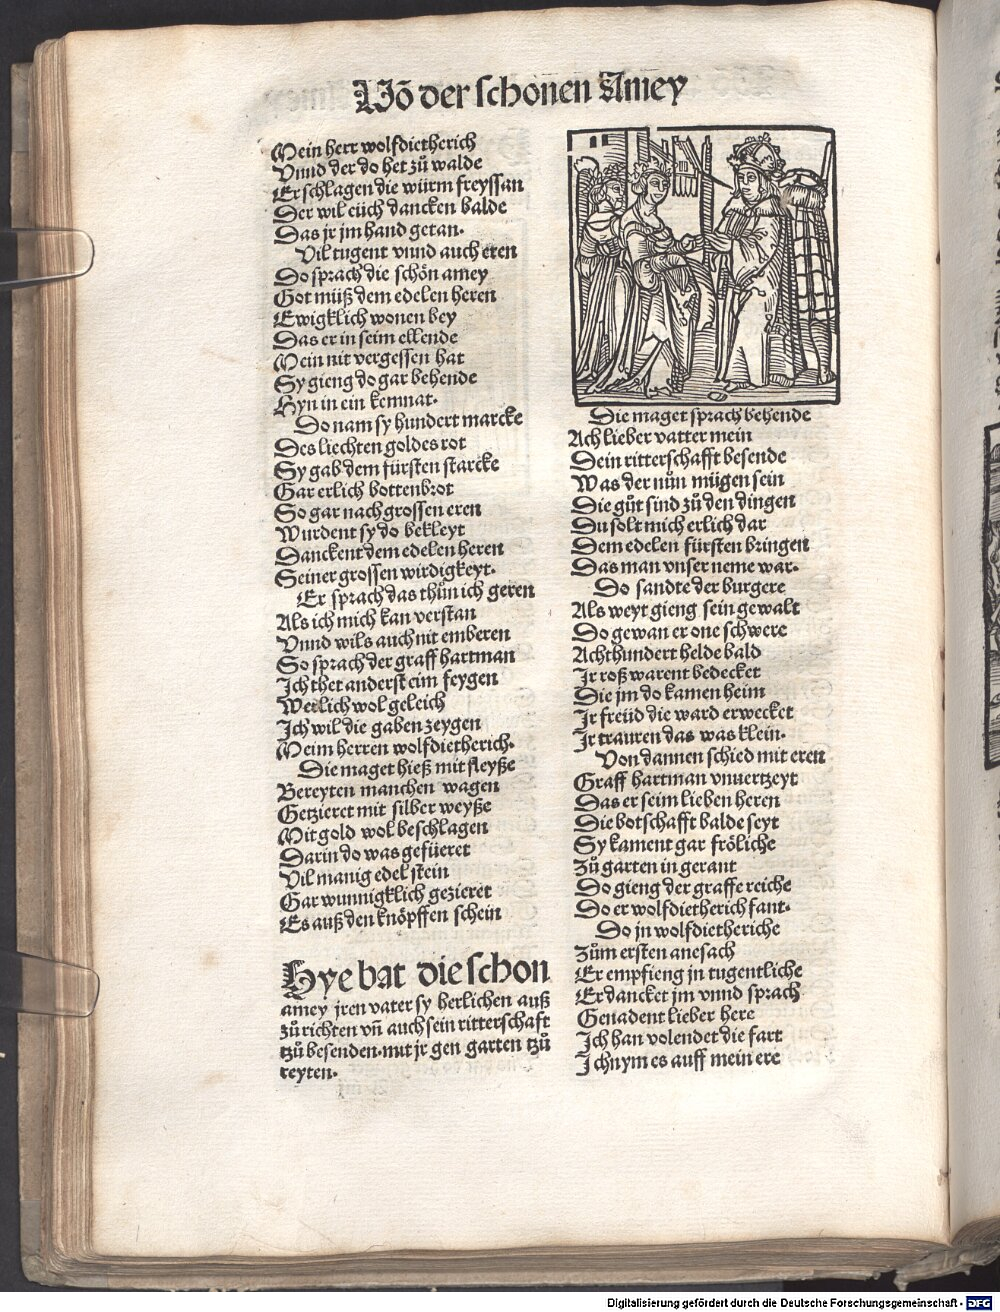 Võ der schonen Amey
Mein herr wolfdietherich
Vnnd der do het zů walde
Erschlagen die würm freyssan
Der wil eüch dancken balde
Das jr jm hand getan.
Vil tugent vnnd auch eren
Do sprach die schön amey
Got müß dem edelen heren
Ewigklich wonen bey
Das er in seim ellende
Mein nit vergessen hat
Sy gieng do gar behende
Hyn in ein kemnat.
Do nam sy hundert marcke
Des liechten goldes rot
Sy gab dem fürsten starcke
Gar erlich bottenbrot
So gar nach grossen eren
Wurdent sy do bekleyt
Danckent dem edelen heren
Seiner grossen wirdigkeyt.
Er sprach das thůn ich geren
Als ich mich kan verstan
Vnnd wils auch nit emberen
So sprach der graff hartman
Ich thet anderst eim feygen
Weilich wol geleich
Ich wil die gaben zeygen
Meim herren wolfdietherich.
Die maget hieß mit fleyße
Bereyten manchen wagen
Getzieret mit silber weyße
Mit gold wol beschlagen
Darin do was gefüeret
Vil manig edel stein
Gar wunnigklich gezieret
Es auß den knöpffen schein
Hye bat die schon
amey jren vater sy herlichen auß
zů richten vñ auch sein ritterschaft
tzů besenden. mit jr gen garten tzů
reyten.
Die maget sprach behende
Ach lieber vatter mein
Dein ritterschafft besende
Was der nün mügen sein
Die gůt sind zů den dingen
Du solt mich erlich dar
Dem edelen fürsten bringen
Das man vnser neme war.
Do sandte der burgere
Als weyt gieng sein gewalt
Do gewan er one schwere
Achthundert helde bald
Ir roß warent bedecket
Die jm do kamen heim
Ir freüd die ward erwecket
Ir trauren das was klein.
Von dannen schied mit eren
Graff hartman vnuertzeyt
Das er seim lieben heren
Die botschafft balde seyt
Sy kament gar fröliche
Zů garten in gerant
Do gieng der graffe reiche
Do er wolfdietherich fant.
Do jn wolfdietheriche
Zům ersten anesach
Er empfieng jn tugentliche
Er dancket jm vnnd sprach
Genadent lieber here
Ich han volendet die fart
Ich nym es auff mein ere
Digitalisierung gefördert durch die Deutsche Forschungsgemeinschaft - DFG